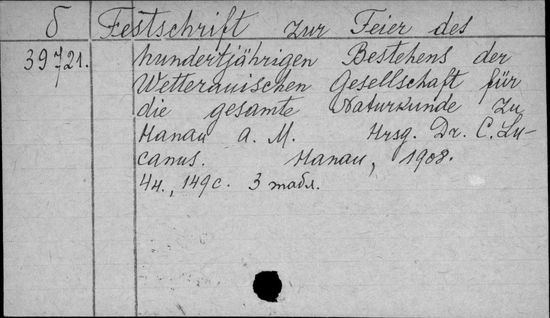 б Festschrift zur Feier des
39721. hundertjährigen Bestehens der
Wetterauischen Gesellschaft für
die gesamte Naturkunde zu
Hanau a. M. Hrsg. Dr. C. Lu-
canus. Hanau, 1908.
4н., 149с. 3 табл.